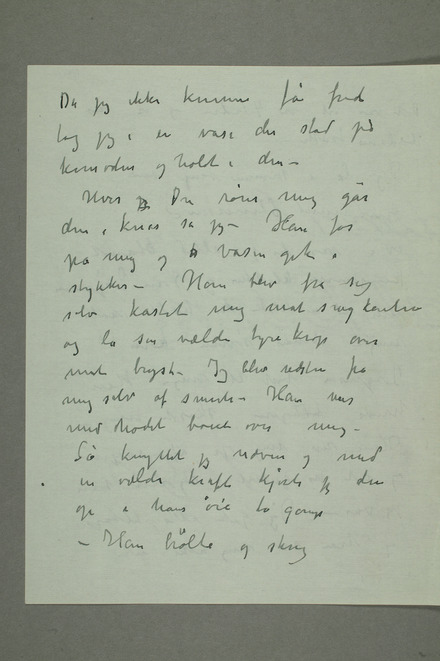 Da jeg ikke kunne få fred
tog jeg i en vase der stod på
komoden og holdt i den –
Hvis jeg Du rører mig går
den i knas sa jeg – Han for
på mig og vasen gik i
stykker – Han blev fra sig
selv kastet mig mot sengekanten
og la sin vælde tyre krop over
mit bryst – Jeg blev fra
mig selv af smerte – Han
med hodet bøiet over mig –
Så knyttet jeg næven og med
en vælde kraft kjørte jeg den
op i hans øie to gange
– Han brølte og skreg